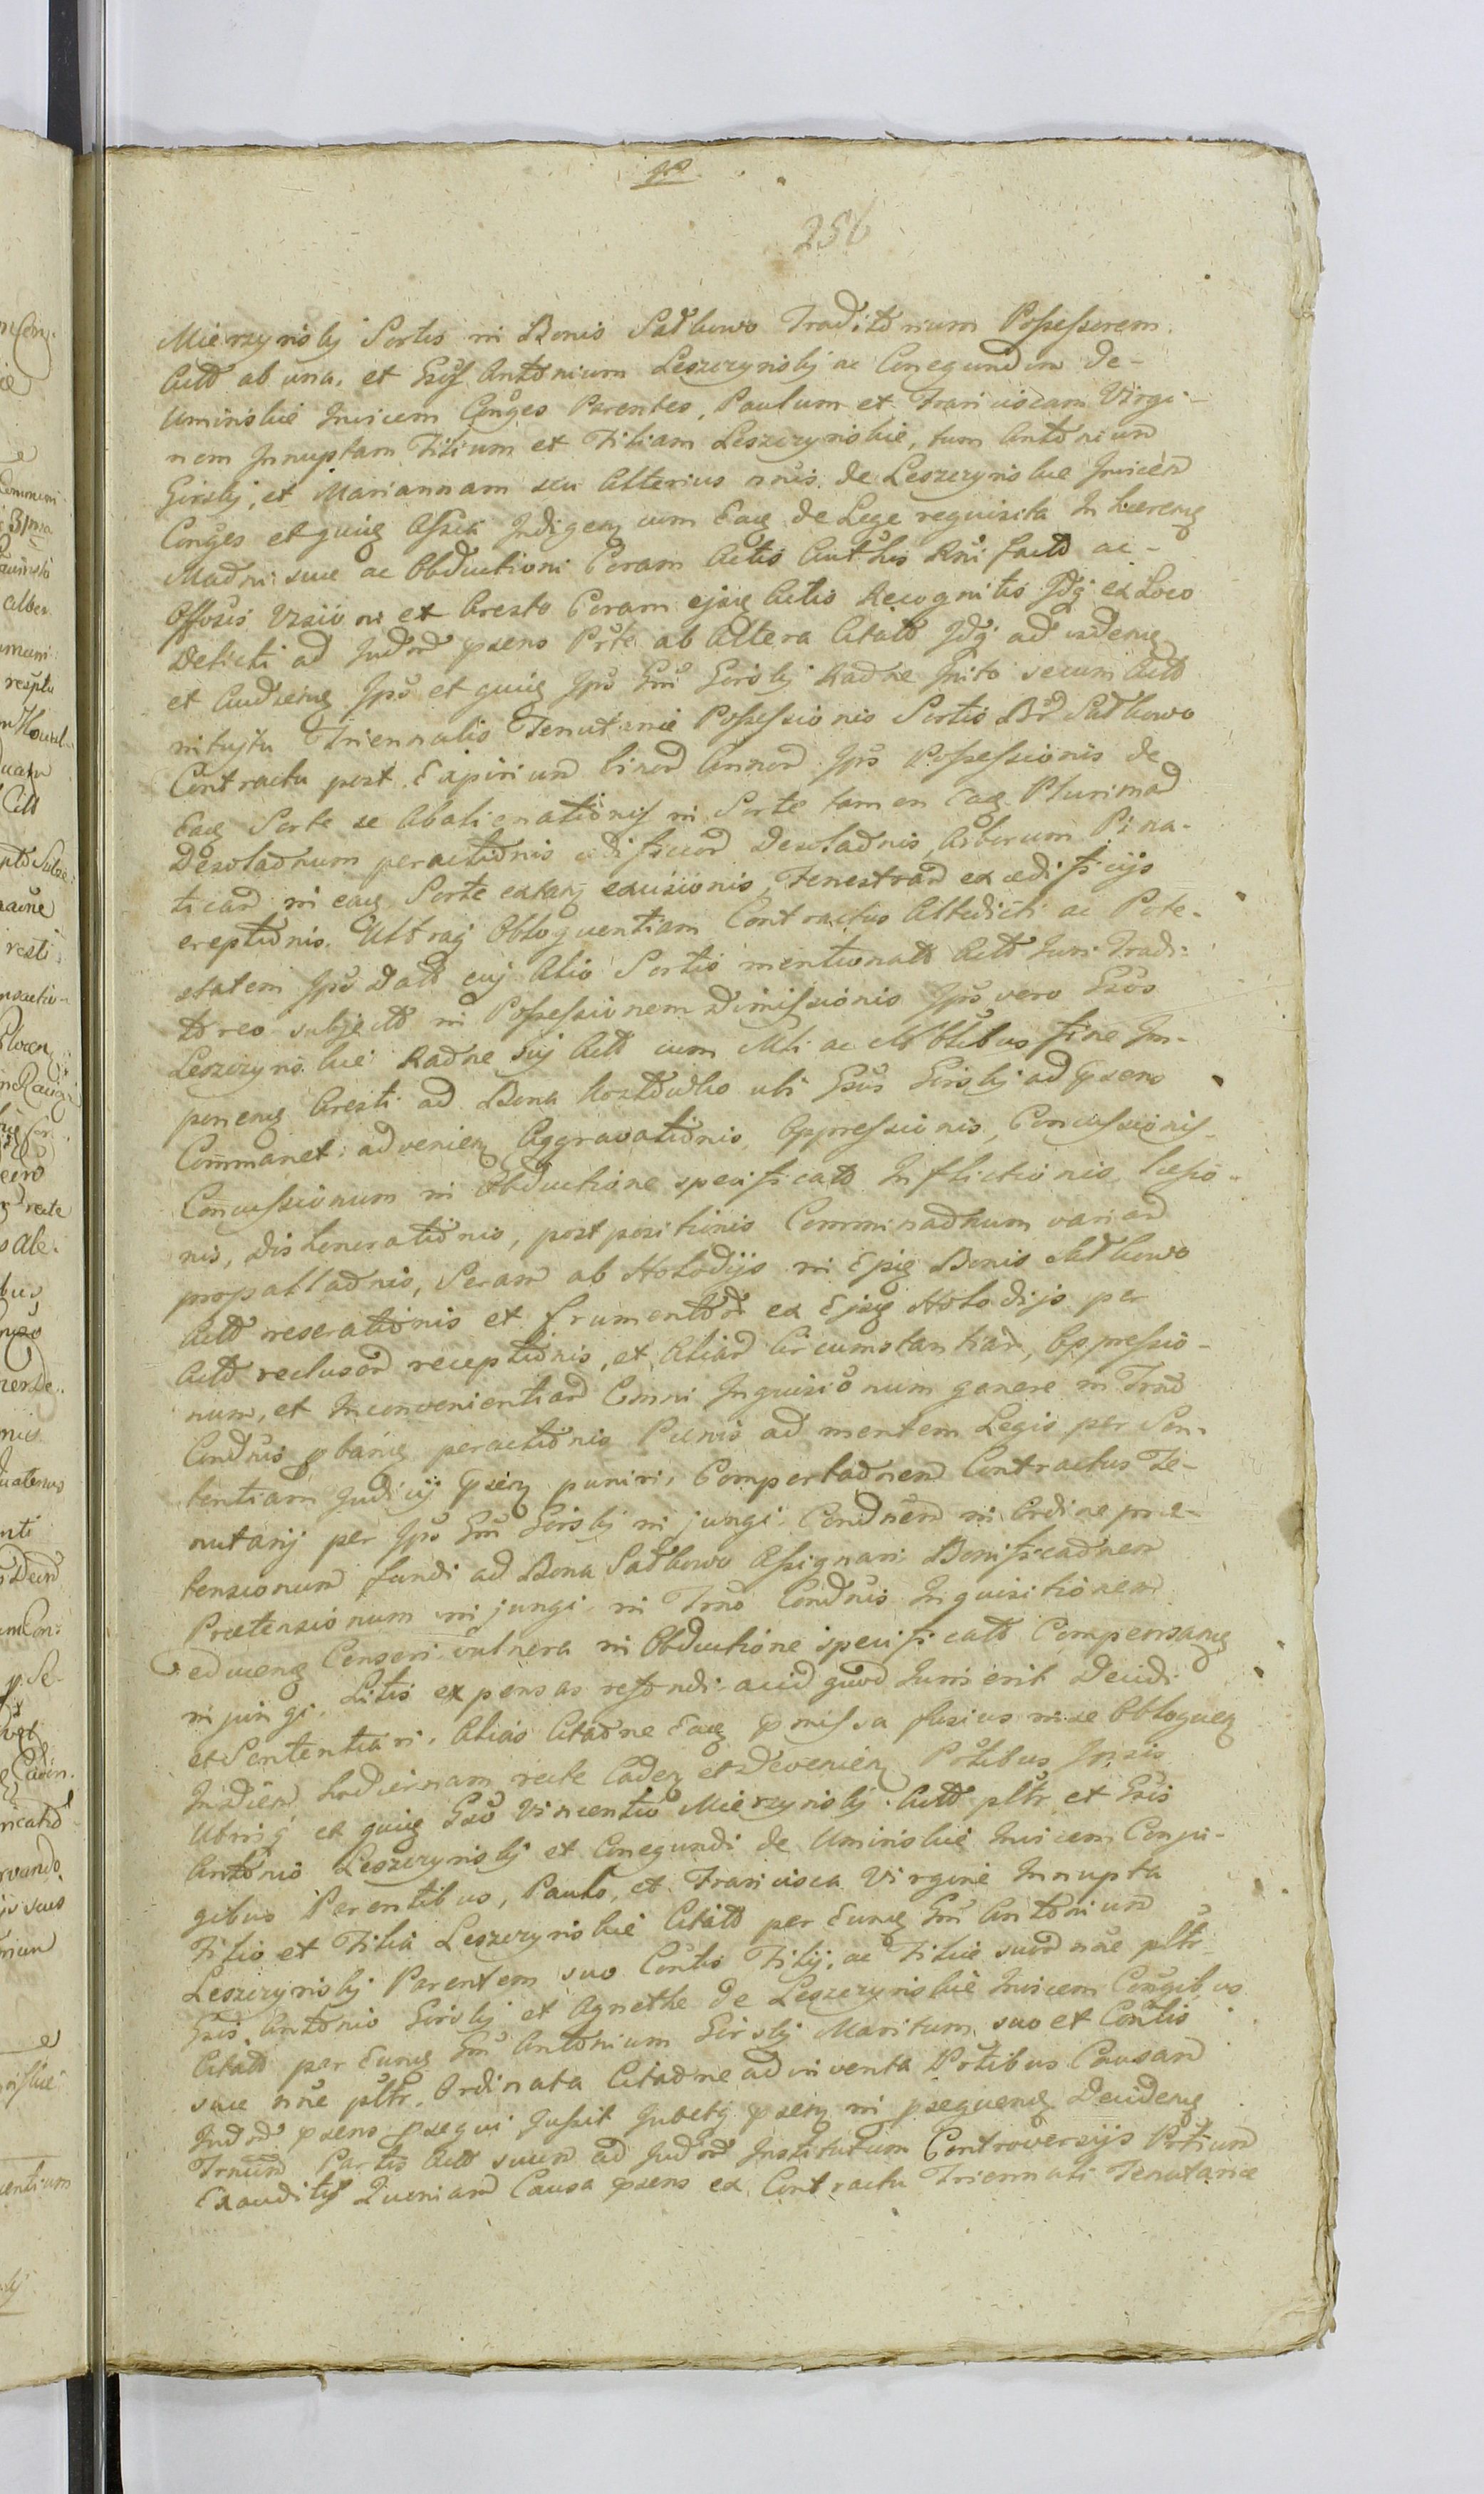 256
Mierzynskj Sortis in Bonis Sadkowo Traditorium Possessorem.
Actō ab una, et Gsos Antonium Leszczynskj ac Conegundim de-
Uminskie Invicem Conges Parentes, Paulum et Franciscam Virgi-
nem Innuptam Filium et Filiam Leszczynskie, tum Antonium
Girskj, et Mariannam seu Alterius nnis de Leszczynskie Invicem
Conges et quūq Assia Indigeng cum Eaq de Lege requisita In hæreng
Madni suæ ac Obductioni Coram Actis Authis Rni factō ac-
Offosis Vsioni et Aresto Coram ejsq Actis Recognitis Idq ex Loco
Delicti ad Judm psens Prte ab Altera Citatō Idq ad
et Audieng Ips et quūq Ips Gm Girskj Radne Inito secum Actō
intujtu Triennalis Tenutariæ Possessionis Sortis Br Sadkowo
Contractu post Expirium binor Annor Ips Possessionis de
Eaq Sorte se Abalienationis in Sorte tamen Eaq Plurimar
Desoladnum peractionis ædificior Desoladnis, Arborum Pina-
ticar in eaq Sorte extang excisionis, Fenestrar ex ædificijs
ereptionis. Ultraq Obloquentiam Contractus Attedicti ac Pote-
statem Ips Datō cuj Alio Sortis mentionatō Actō Juri Tradi-
torio subjectō in Possessionem Dimissionis Ips vero Gsos
Leszczynskie Radne Suj Actō cum Mli ac Nobtibus fine Im-
poneng Aresti ad Bona ubi Gsus Girskj ad psens
Commanet advening Aggravationis, Oppressionis, Concussionis
Concussionum in Obductione specificatō Inflictionis, læsio-
nis, Dishonerationis, postpositionis Comminadnum variar
propalladnis, Serar ab Holodijs in Epiq Bonis Sadkowo
Actō reserationis et frumentor ex Ejsq Holodijs per
Actō reclusor receptionis, et Aliar Circumstantiar, Oppressio-
num, et Inconvenientiar Omni Inquisionum genere in Trno
Condnis pbanq peractionis Pœnis ad mentem Legis per Sen-
tentiam Judicij pseng puniri, Comportadnem Contractus Te-
nutarij per Ips Gm Girskj injungi. Condnem in Ordine præ-
tensionum fundi ad Bona Sadkowo Assignari Bonificadnem
Prætensionum injungi in Trno Condnis Inquisitionem
educeng Censeri vulnera in Obductione specificatō Compensanq
injungi. Litis expensas refondi ac id quod Juris erit Decidi
et Sententiari. Alias Citadne Eaq pmissa fusius in se Obloqueng
In diem hodiernam recte Cadeng et Devenieng Prtibus Ipsis
Utrisq et quūq Gso Vincentio Mierzynskj Actō pltr et Gsis
Antonio Leszczynskj et Conegundi de Uminskie Invicem Conju-
gibus Parentibus, Paulo, et Francisca Virgine Innupta
Filio et Filia Leszczynskie Citatō per Eunq Gm Antonium
Leszczynskj Parentem suo Contis Filij, ac Filiæ suor nne pltr-
Gsis Antonio Girskj et Agnethe de Leszczynskie Invicem Congibus
Citatō per Eunq Gm Antonium Girskj Maritum suo et Contis
suæ nne pltr. Ordinata Citadne adinventa Prtibus Causam
Judm psens psequi Jussit Jubetq pseng in psequenq Decideng
Trnum Partis Actō suum ad Judm Institutum Controversijs Prtium
Exauditis Quoniam Causa psens ex Contractu Triennali Tenutariæ